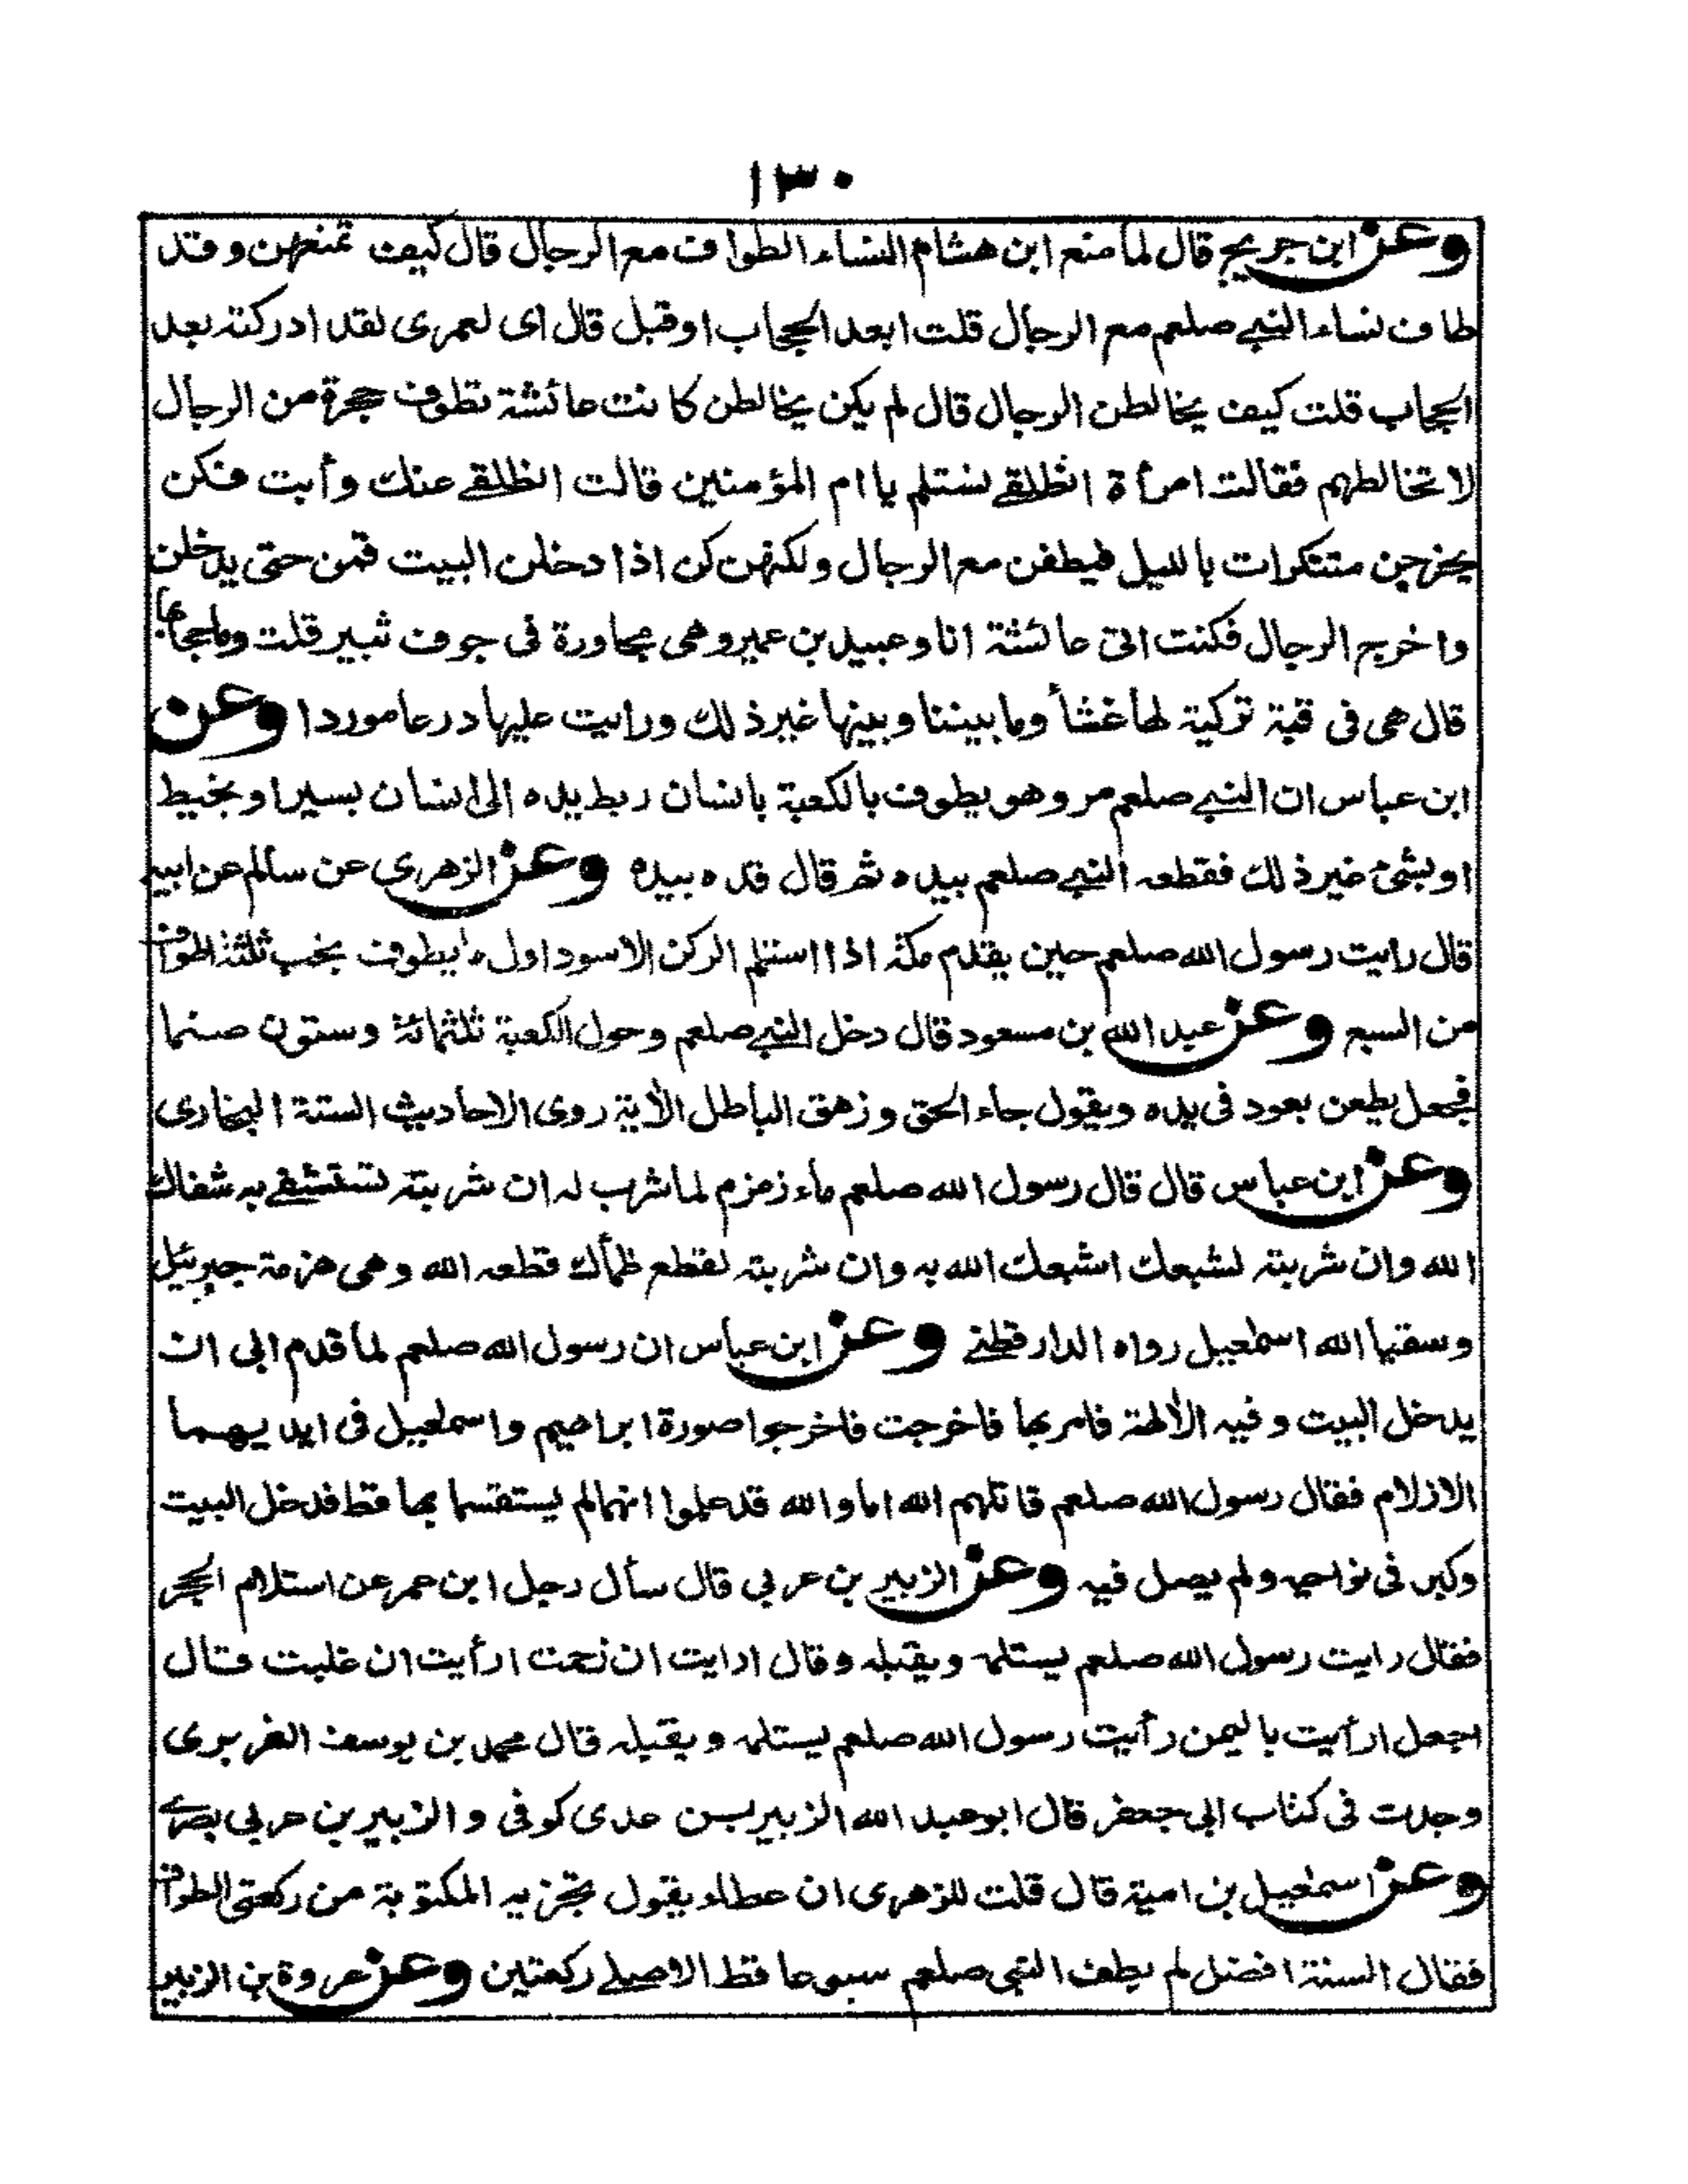 ١٣٠
وعن ابن جريج قال لما منع ابن هشام النساء الطواف مع الرجال قال كيف تمنعهن وقد
طاف نساء النبي صلعم مع الرجال قلت ابعد الحجاب او قبل قال اى لعمرى لقد ادركته بعد
الحجاب قلت كيف يخالطن الرجال قال لم يكن يخالطن كانت عائشة تطوف حجرة من الرجال
لا تخالطهم فقالت امرأة انطلقے نستلم يا ام المؤمنين قالت انطلقے عنك وأبت فكن
يخرجن متنكرات بالليل فيطفن مع الرجال ولكنهن كن اذا دخلن البيت قمن حتى يدخلن
واخرج الرجال فكنت اتى عائشة انا وعبيد بن عمير وهى مجاورة فى جوف ثبير قلت وما حجابها
قال هى فى قبة تركية لها غشأ وما بيننا وبينها غير ذلك ورايت عليها درعا موردا وعن
ابن عباس ان النبے صلعم مر وهو يطوف بالكعبة بانسان ربط يده الى انسان بسير او بخيط
او بشئ غير ذلك فقطعه النبے صلعم بيده ثم قال قده بيده وعن الزهرى عن سالم عن ابيه
قال رايت رسول الله صلعم حين يقدم مكة اذا استلم الركن الاسود اول ما يطوف يخب ثلثة اطواف
من السبع وعن عبد الله بن مسعود قال دخل النبے صلعم وحول الكعبة ثلثمائة وستون صنما
فجعل يطعن بعود فى يده ويقول جاء الحق وزهق الباطل الأية روى الاحاديث الستة البخارى
وعن ابن عباس قال قال رسول الله صلعم ماء زمزم لما شرب له ان شربته تستشفے به شفاك
الله وان شربته لشبعك اشبعك الله به وان شربته لقطع ظمأك قطعه الله وهى هزمة جبرئيل
وسقيا الله اسمعيل رواه الدارقطنے وعن ابن عباس ان رسول الله صلعم لما قدم ابى ان
يدخل البيت وفيه الألهة فامر بها فاخرجت فاخرجوا صورة ابراهيم واسمعيل فى ايديهما
الازلام فقال رسول الله صلعم قاتلهم الله اما والله قد علموا انهما لم يستقسما بها قط فدخل البيت
وكبر فى نواحيه ولم يصل فيه وعن الزبير بن عربي قال سأل رجل ابن عمر عن استلام الحجر
فقال رايت رسول الله صلعم يستلمه ويقبله وقال ارايت ان زحمت ارأيت ان غلبت قال
اجعل ارأيت باليمن رأيت رسول الله صلعم يستلمه ويقبله قال محمد بن يوسف الفربرى
وجدت فى كتاب ابى جعفر قال ابو عبد الله الزبير بن عدى كوفى والزبير بن عربي بصرے
وعن اسمعيل بن امية قال قلت للزهرى ان عطاء يقول تجزيه المكتوبة من ركعتى الطواف
فقال السنة افضل لم يطف النبى صلعم سبوعا قط الا صلے ركعتين وعن عروة بن الزبير